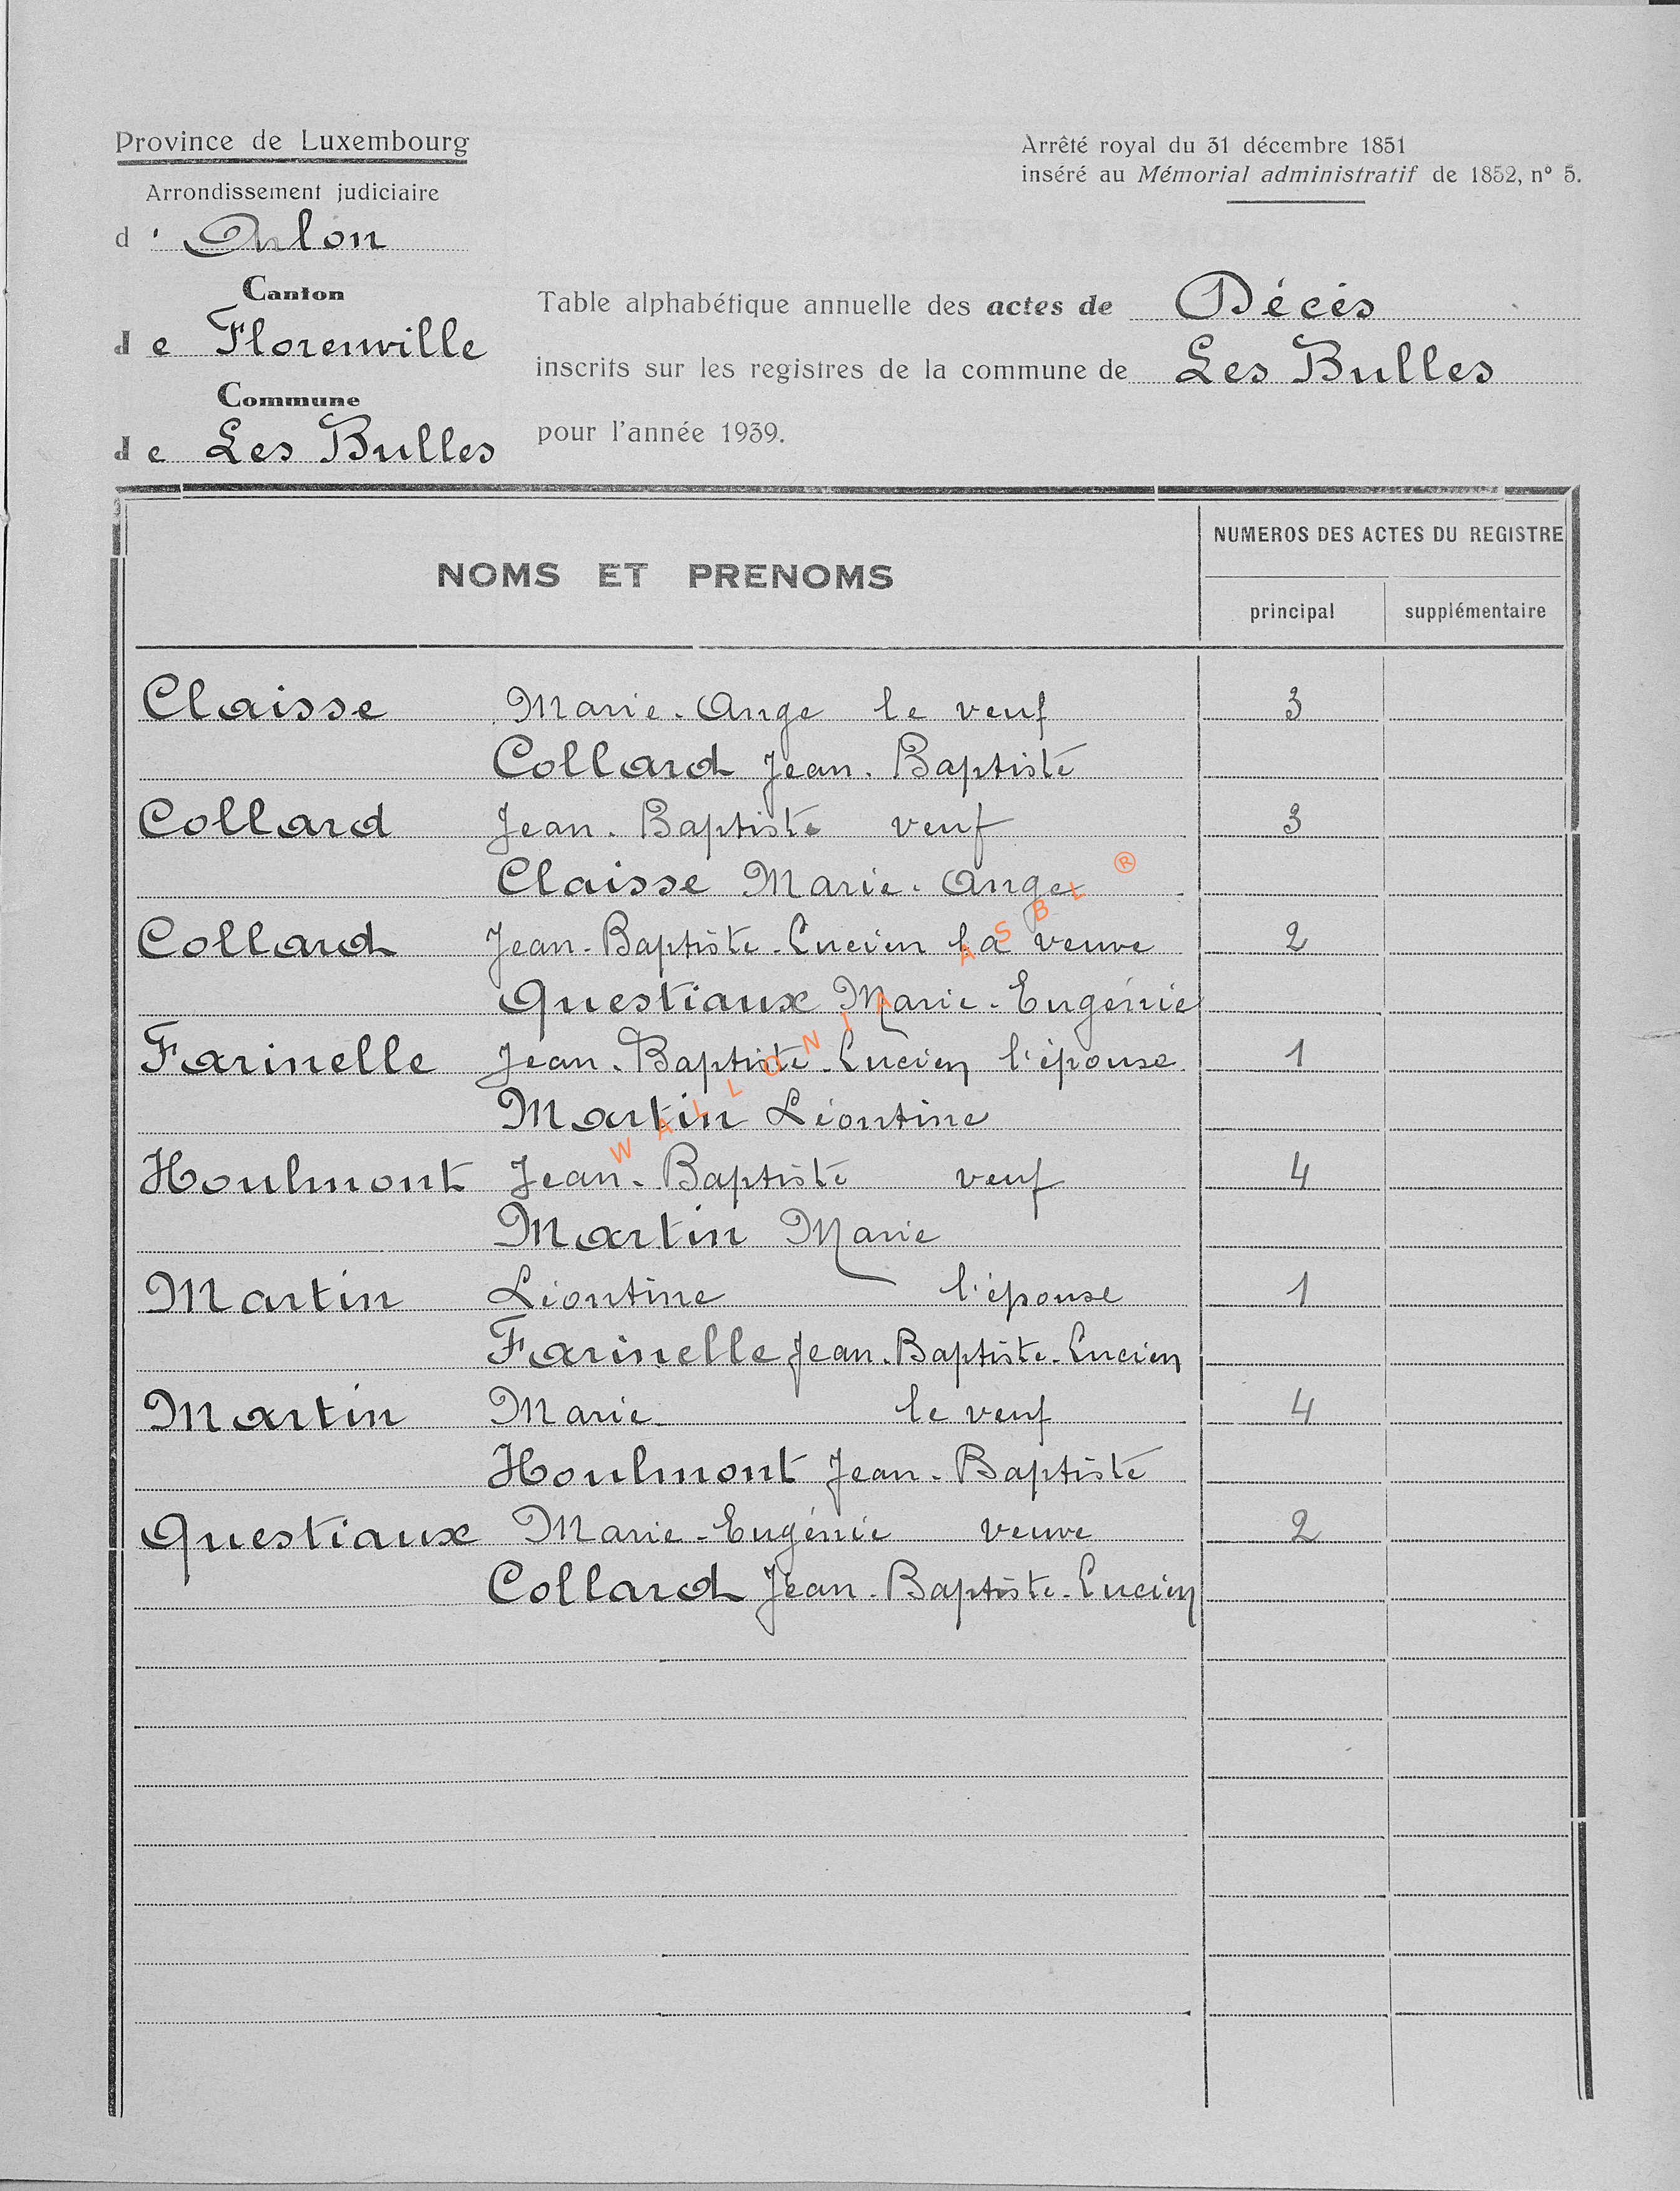 Province de Luxembourg
Arrondissement judiciaire
d' Arlon
Canton
de Florenville
Commune
de Les Bulles
Arrêté royal du 31 décembre 1851
inséré au Mémorial administratif de 1852, n° 5.
Table alphabétique annuelle des actes de Décès
inscrits sur les registres de la commune de Les Bulles
pour l'année 1939.
NOMS ET PRENOMS
NUMEROS DES ACTES DU REGISTRE
principal supplémentaire
Claisse Marie-Ange le veuf 3
Collard Jean-Baptiste
Collard Jean-Baptiste veuf 3
Claisse Marie-Ange
Collard Jean-Baptiste-Lucien la veuve 2
Questiaux Marie-Eugénie
Farinelle Jean-Baptiste-Lucien l'épouse 1
Martin Léontine
Houlmont Jean-Baptiste veuf 4
Martin Marie
Martin Léontine l'épouse 1
Farinelle Jean-Baptiste-Lucien
Martin Marie le veuf 4
Houlmont Jean-Baptiste
Questiaux Marie-Eugénie veuve 2
Collard Jean-Baptiste-Lucien
WALLONIA ASBL ®